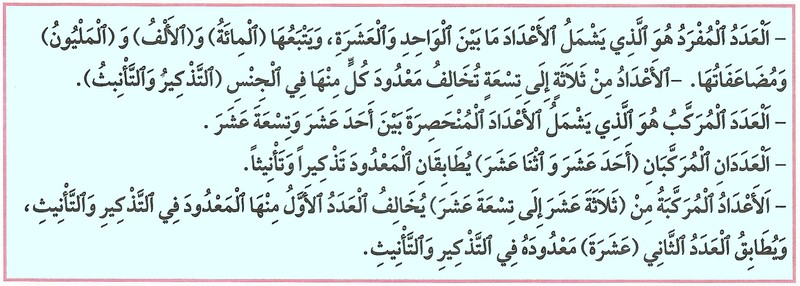 – اَلْعَدَدُ الْمُفْرَدُ هُوَ الَّذِي يَشْمَلُ الأَعْدَادَ مَا بَيْنَ الْوَاحِدِ وَالْعَشَرَةِ، وَيَتْبَعُهَا (الْمِائَةُ) وَ(الأَلْفُ) وَ (الْمَلْيُونُ)
وَمُضَاعَفَاتُهَا. –الأَعْدَادُ مِنْ ثَلَاثَةٍ إِلَى تِسْعَةٍ تُخَالِفُ مَعْدُودَ كُلٍّ مِنْهَا فِي الْجِنْسِ (التَّذْكِيرُ وَالتَّأْنِيثُ).
– اَلْعَدَدُ الْمُرَكَّبُ هُوَ الَّذِي يَشْمَلُ الأَعْدَادَ الْمُنْحَصِرَةَ بَيْنَ أَحَدَ عَشَرَ وَتِسْعَةَ عَشَرَ .
– اَلْعَدَدَانِ الْمُرَكَّبَانِ (أَحَدَ عَشَرَ وَ اثْنَا عَشَرَ) يُطَابِقَانِ الْمَعْدُودَ تَذْكِيراً وَتَأْنِيثاً.
– اَلأَعْدَادُ الْمُرَكَّبَةُ مِنْ (ثَلَاثَةَ عَشَرَ إِلَى تِسْعَةَ عَشَرَ) يُخَالِفُ الْعَدَدُ الأَوَّلُ مِنْهَا الْمَعْدُودَ فِي التَّذْكِيرِ وَالتَّأْنِيثِ،
وَيُطَابِقُ الْعَدَدُ الثَّانِي (عَشَرَةَ) مَعْدُودَهُ فِي التَّذْكِيرِ وَالتَّأْنِيثِ.